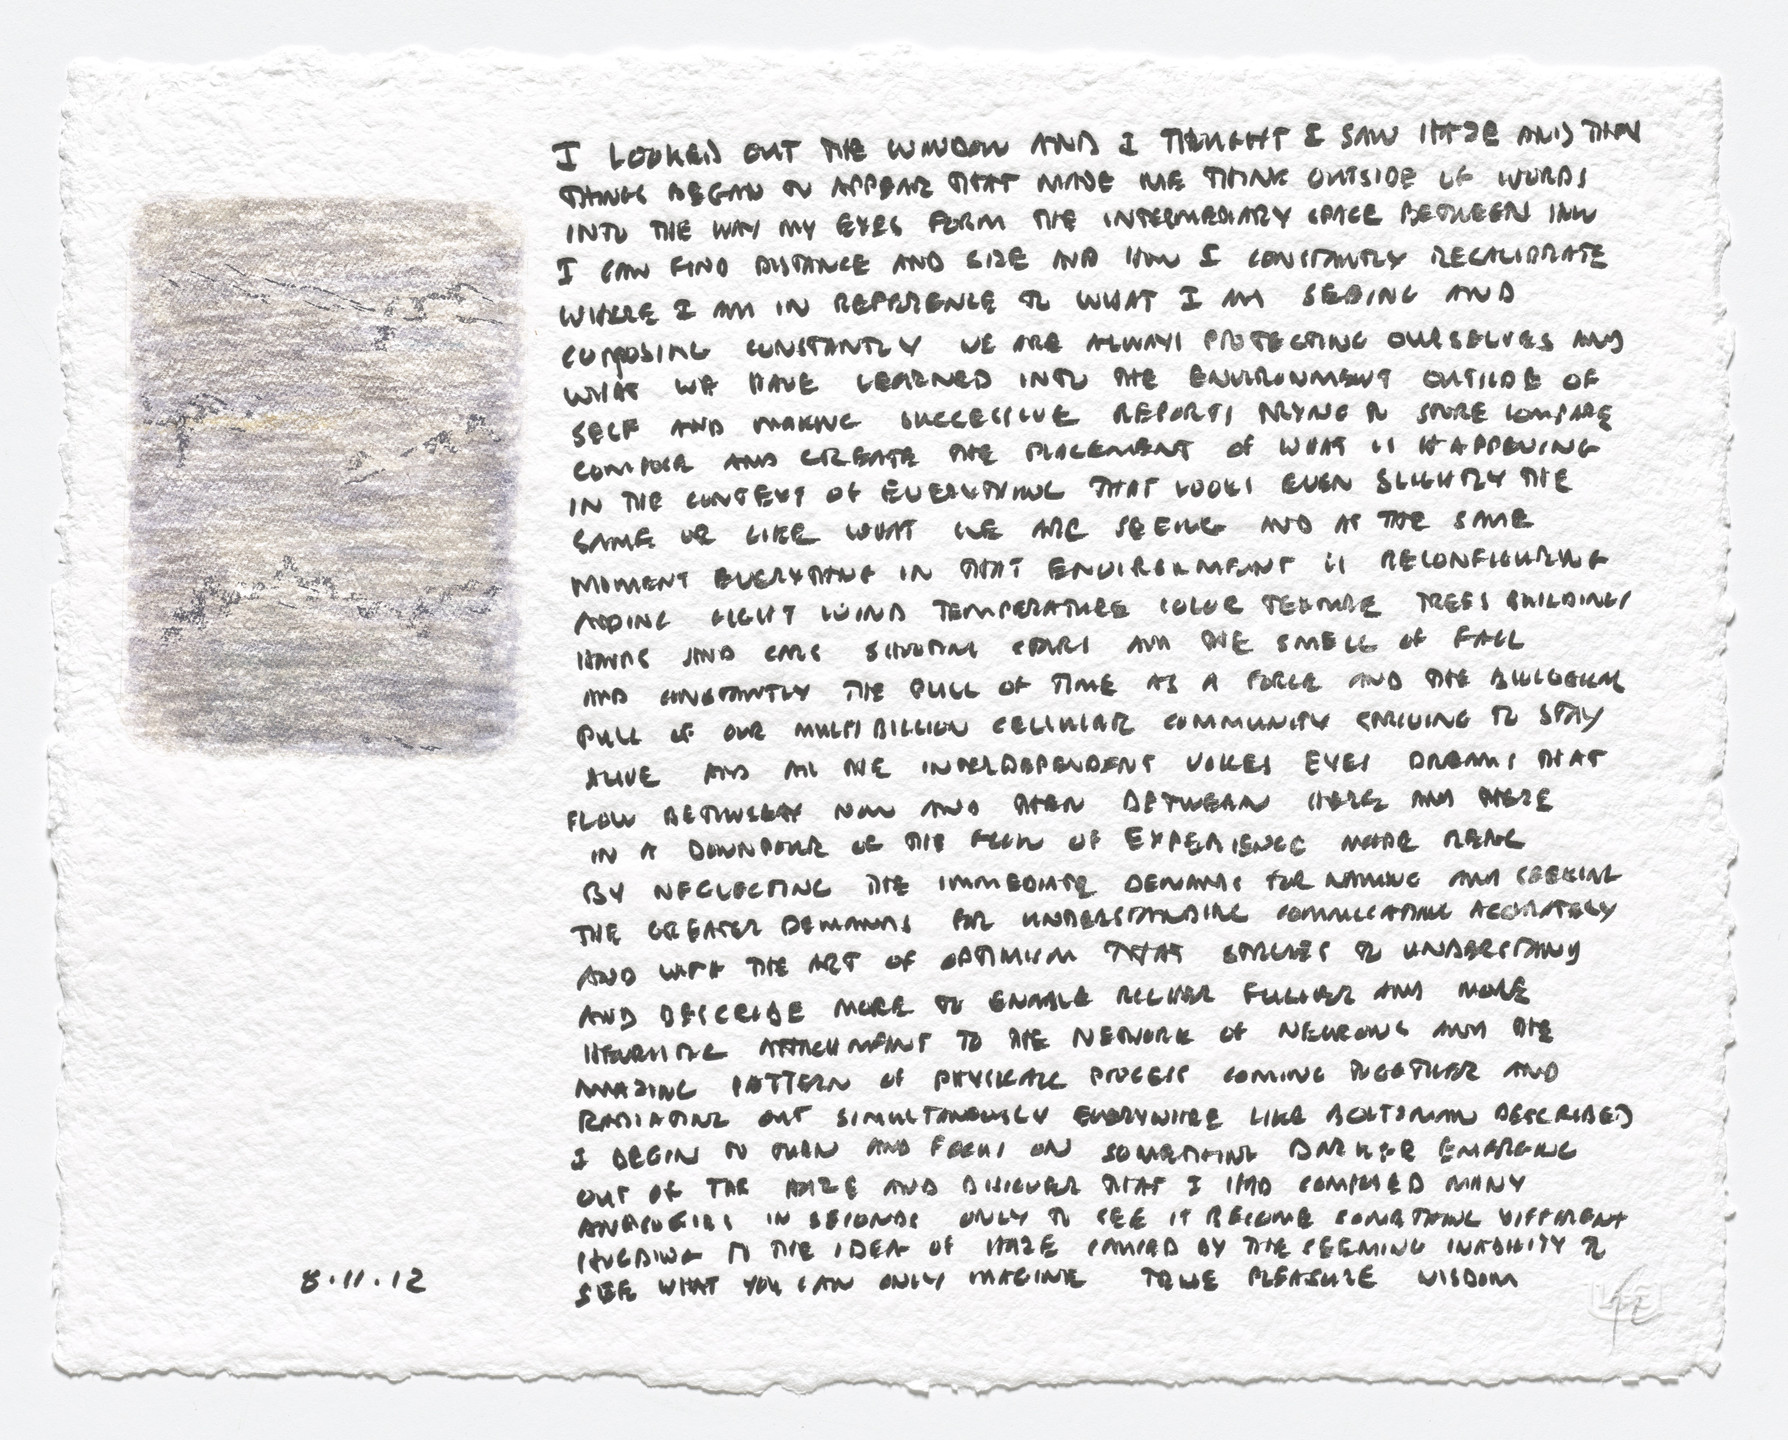 I LOOKED OUT THE WINDOW AND I THOUGHT I SAW HAZE AND THEN
THINGS BEGAN TO APPEAR THAT MADE ME THINK OUTSIDE OF WORDS
INTO THE WAY MY EYES FORM THE INTERMEDIARY SPACE BETWEEN HOW
I CAN FIND DISTANCE AND SIZE AND HOW I CONSTANTLY RECALIBRATE
WHERE I AM IN REFERENCE TO WHAT I AM SEEING AND
COMPOSING CONSTANTLY WE ARE ALWAYS PROTECTING OURSELVES AND
WHAT WE HAVE LEARNED INTO THE ENVIRONMENT OUTSIDE OF
SELF AND MAKING SUCCESSIVE REPORTS TRYING TO STORE COMPARE
COMPOSE AND CREATE THE PLACEMENT OF WHAT IS HAPPENING
IN THE CONTEXT OF EVERYTHING THAT LOOKS EVEN SLIGHTLY THE
SAME OR LIKE WHAT WE ARE SEEING AND AT THE SAME
MOMENT EVERYTHING IN THAT ENVIRONMENT IS RECONFIGURING
ADDING LIGHT WIND TEMPERATURE COLOR TEXTURE TREES BUILDINGS
HANDS AND CARS SHOOTING STARS AND THE SMELL OF FALL
AND CONSTANTLY THE PULL OF TIME AS A FORCE AND THE BIOLOGICAL
PULL OF OUR MULTI BILLION CELLULAR COMMUNITY STRIVING TO STAY
ALIVE AND ALL THE INTERDEPENDENT VOICES EYES DREAMS THAT
FLOW BETWEEN NOW AND THEN BETWEEN HERE AND THERE
IN A DOWNPOUR OF THE FLOW OF EXPERIENCE MADE REAL
BY NEGLECTING THE IMMEDIATE DEMANDS FOR NAMING AND SEEKING
THE GREATER DEMANDS FOR UNDERSTANDING COMMUNICATING ACCURATELY
AND WITH THE ART OF OPTIMISM THAT STRIVES TO UNDERSTAND
AND DESCRIBE MORE TO ENABLE RICHER FULLER AND MORE
HEURISTIC ATTACHMENT TO THE NETWORK OF NEURONS AND THE
AMAZING PATTERN OF PHYSICAL PROCESS COMING TOGETHER AND
RADIATING OUT SIMULTANOUSLY EVERYWHERE LIKE BOLTZMAN DESCRIBED
I BEGIN TO TURN AND FOCUS ON SOMETHING DARKER EMERGING
OUT OF THE HAZE AND DISCOVER THAT I HAD COMPOSED MANY
ANALOGIES IN SECONDS ONLY TO SEE IT BECOME SOMETHING DIFFERENT
TO THE IDEA OF HAZE CAUSED BY THE SEEMING INABILITY TO
SEE WHAT YOU CAN ONLY IMAGINE TRUE PLEASURE WISDOM
8.11.12